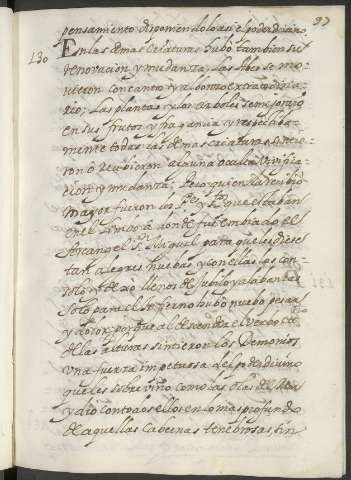 97
pensamiento disponiendolo asi el poder divino,
130 En las demas criaturas hubo tambien su
renovacion y mudanza. Las Aves se mo-
vieron con canto y alborozo extraordina-
rio; Las plantas y los arboles se mejoraron
en sus frutos y fragancia y respectiba-
mente todas las demas criaturas sintie-
ron ô recibieron alguna oculta vivifica-
cion y mudanza; Pero quien la recibiô
mayor fueron los P.es y S.tos que estaban
en el Limbo à donde fue embiado el
Arcangel S.n Miguel para que les diese
tan alegres nuebas y con ellas los con-
solô y dejo llenos de jubilo y alabanza
Solo para el Infierno hubo nuebo pesar
y dolor, porque al descender el Verbo Eterno
de las alturas sintieron los Demonios
vna fuerza impetuosa del poder divino
que les sobrevino como las olas del Mar
y dio con todos ellos en lo mas profundo
de aquellas cabernas tenebrosas, sin